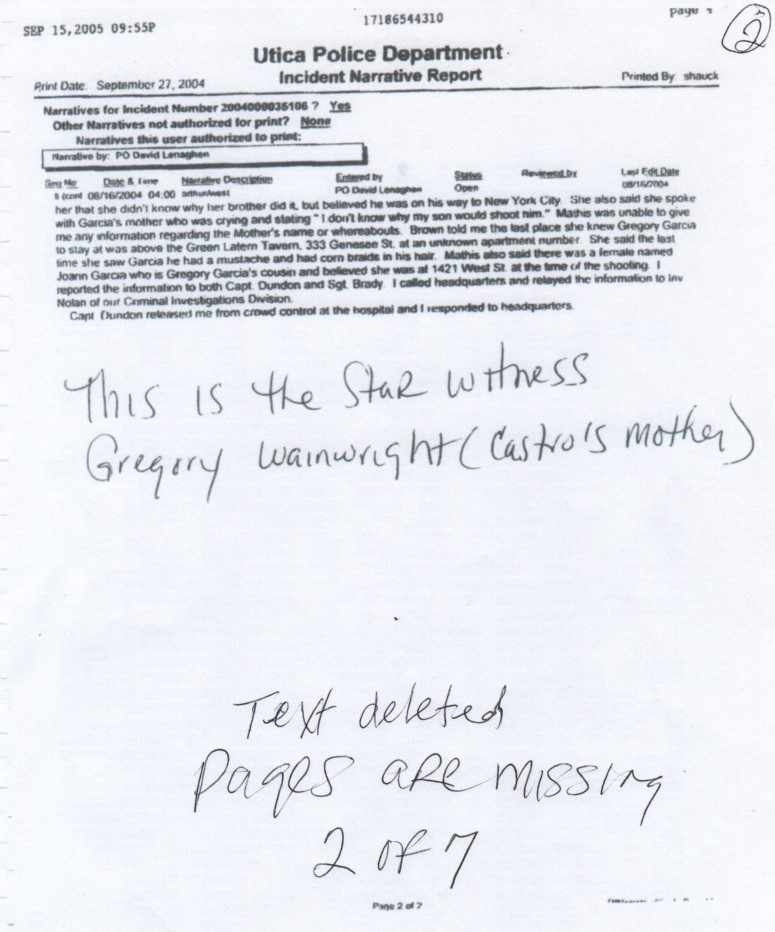 SEP 15,2005 09:55P 17186544310 page
2
Utica Police Department
Incident Narrative Report
Print Date: September 27, 2004 Printed By: shauck
Narratives for Incident Number 2004000035106 ? Yes
Other Narratives not authorized for print? None
Narratives this user authorized to print:
Narrative by: PO David Lenaghen
Seq No Date & Time Narrative Description Entered by Status Reviewed by Last Edit Date
5 (cont 08/16/2004 04:00 arthur/west PO David Lenaghen Open 08/16/2004
her that she didn't know why her brother did it, but believed he was on his way to New York City. She also said she spoke
with Garcia's mother who was crying and stating " I don't know why my son would shoot him." Mathis was unable to give
me any information regarding the Mother's name or whereabouts. Brown told me the last place she knew Gregory Garcia
to stay at was above the Green Latern Tavern, 333 Genesee St. at an unknown apartment number. She said the last
time she saw Garcia he had a mustache and had corn braids in his hair. Mathis also said there was a female named
Joann Garcia who is Gregory Garcia's cousin and believed she was at 1421 West St. at the time of the shooting. I
reported the information to both Capt. Dundon and Sgt. Brady. I called headquarters and relayed the information to Inv
Nolan of our Criminal Investigations Division.
Capt. Dundon released me from crowd control at the hospital and I responded to headquarters.
This is the Star witness
Gregory Wainwright (Castro's mother)
Text deleted
Pages are missing
2 of 7
Page 2 of 7